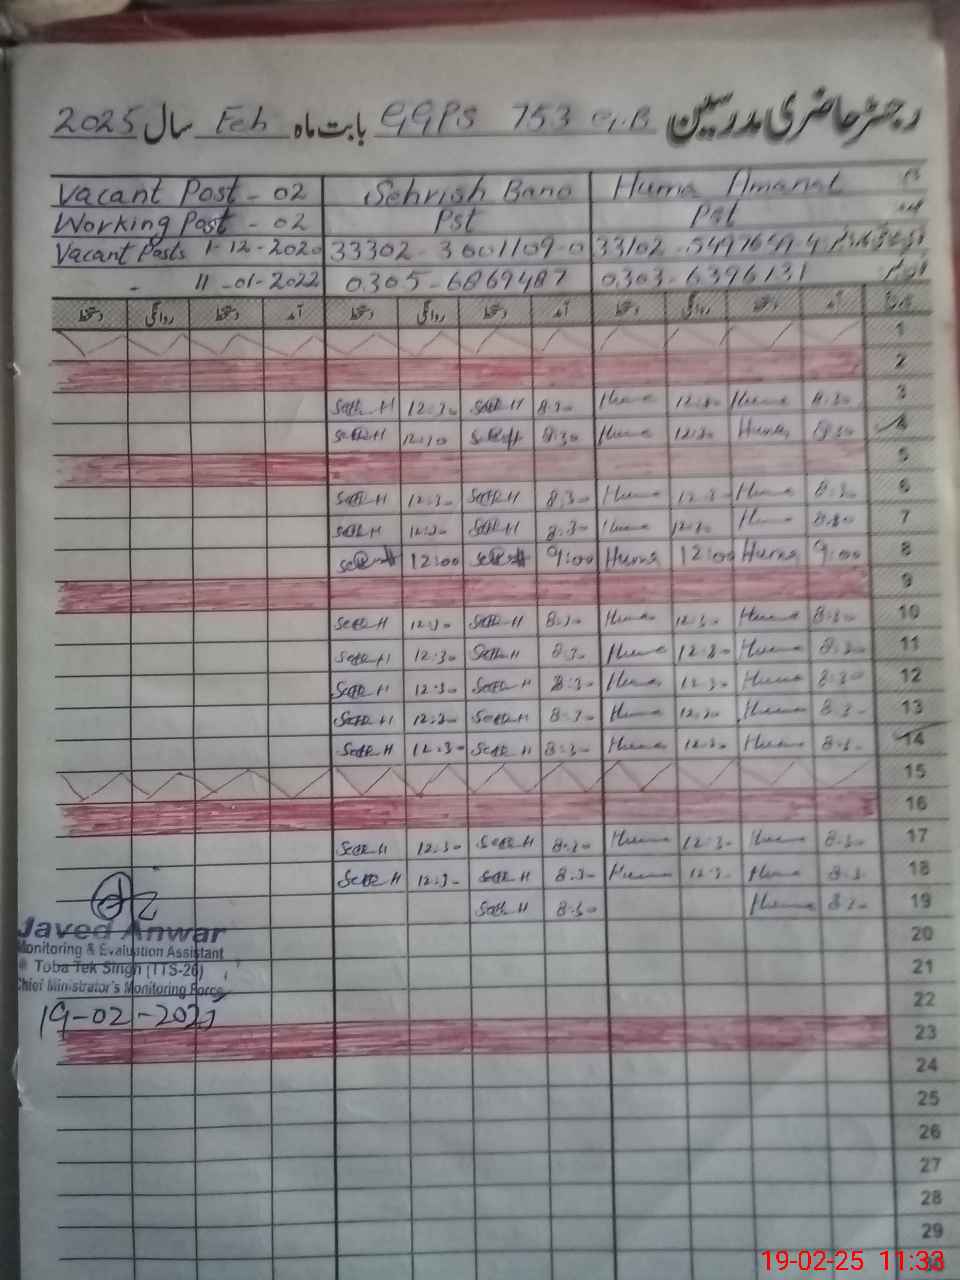 رجسٹر حاضری مدرسین GGPS 753 G.B بابت ماہ Feb سال 2025
Vacant Post - 02 Sehrish Bano Huma Amanat نام
Working Post - 02 Pst Pst عہدہ
Vacant Posts 1-12-2020 33302-3001109-0
11-01-2022 0305-6869487 0303-6396131
دستخط روانگی دستخط آمد دستخط روانگی دستخط آمد دستخط روانگی دستخط آمد تاریخ
1
2
3 8:30 Huma 12:30 Huma 8:30 12:30
4 8:30 Huma 12:30 Huma 8:30 12:30
5
6 8:30 Huma 12:30 Huma 8:30 12:30
7 8:30 Huma 12:30 Huma 8:30 12:30
8 9:00 Huma 12:00 Huma 9:00 12:00
9
10 8:30 Huma 12:30 Huma 8:30 12:30
11 8:30 Huma 12:30 Huma 8:30 12:30
12 8:30 Huma 12:30 Huma 8:30 12:30
13 8:30 Huma 12:30 Huma 8:30 12:30
14 8:30 Huma 12:30 Huma 8:30 12:30
15
16
17 8:30 Huma 12:30 Huma 8:30 12:30
18 8:30 Huma 12:30 Huma 8:30 12:30
19 8:30 Huma 8:30
20
21
22
23
24
25
26
27
28
29
Javed Anwar
Monitoring & Evaluation Assistant
Toba Tek Singh (TTS-26)
Chief Ministrator's Monitoring Force
19-02-2025
19-02-25 11:33